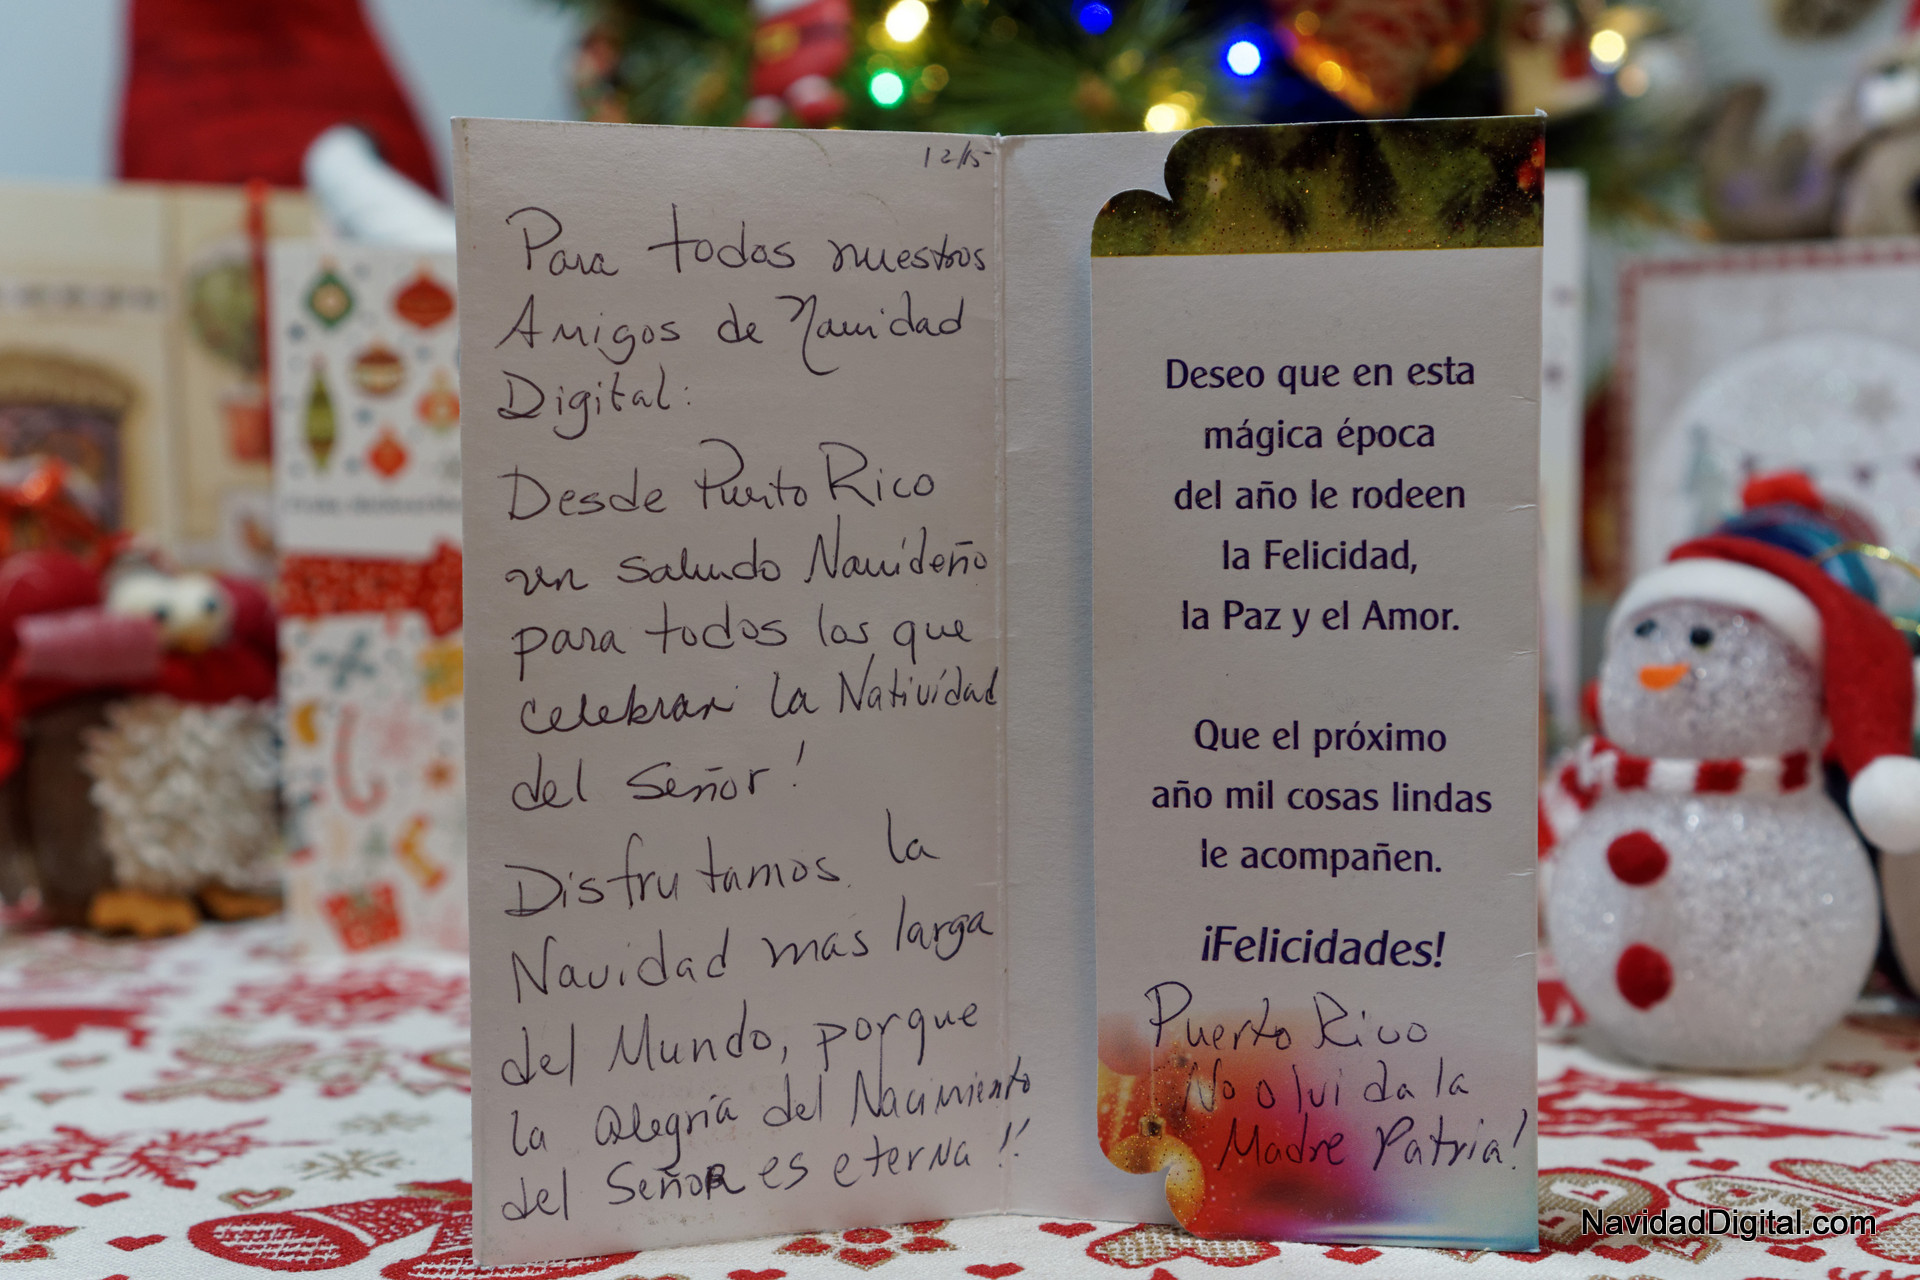 12/15
Para todos nuestros
Amigos de Navidad
Digital:
Desde Puerto Rico
un saludo Navideño
para todos los que
celebran la Natividad
del Señor!
Disfrutamos la
Navidad mas larga
del Mundo, porque
la alegría del Nacimiento
del Señor es eterna!!
Deseo que en esta
mágica época
del año le rodeen
la Felicidad,
la Paz y el Amor.
Que el próximo
año mil cosas lindas
le acompañen.
¡Felicidades!
Puerto Rico
No olvida la
Madre Patria!
NavidadDigital.com